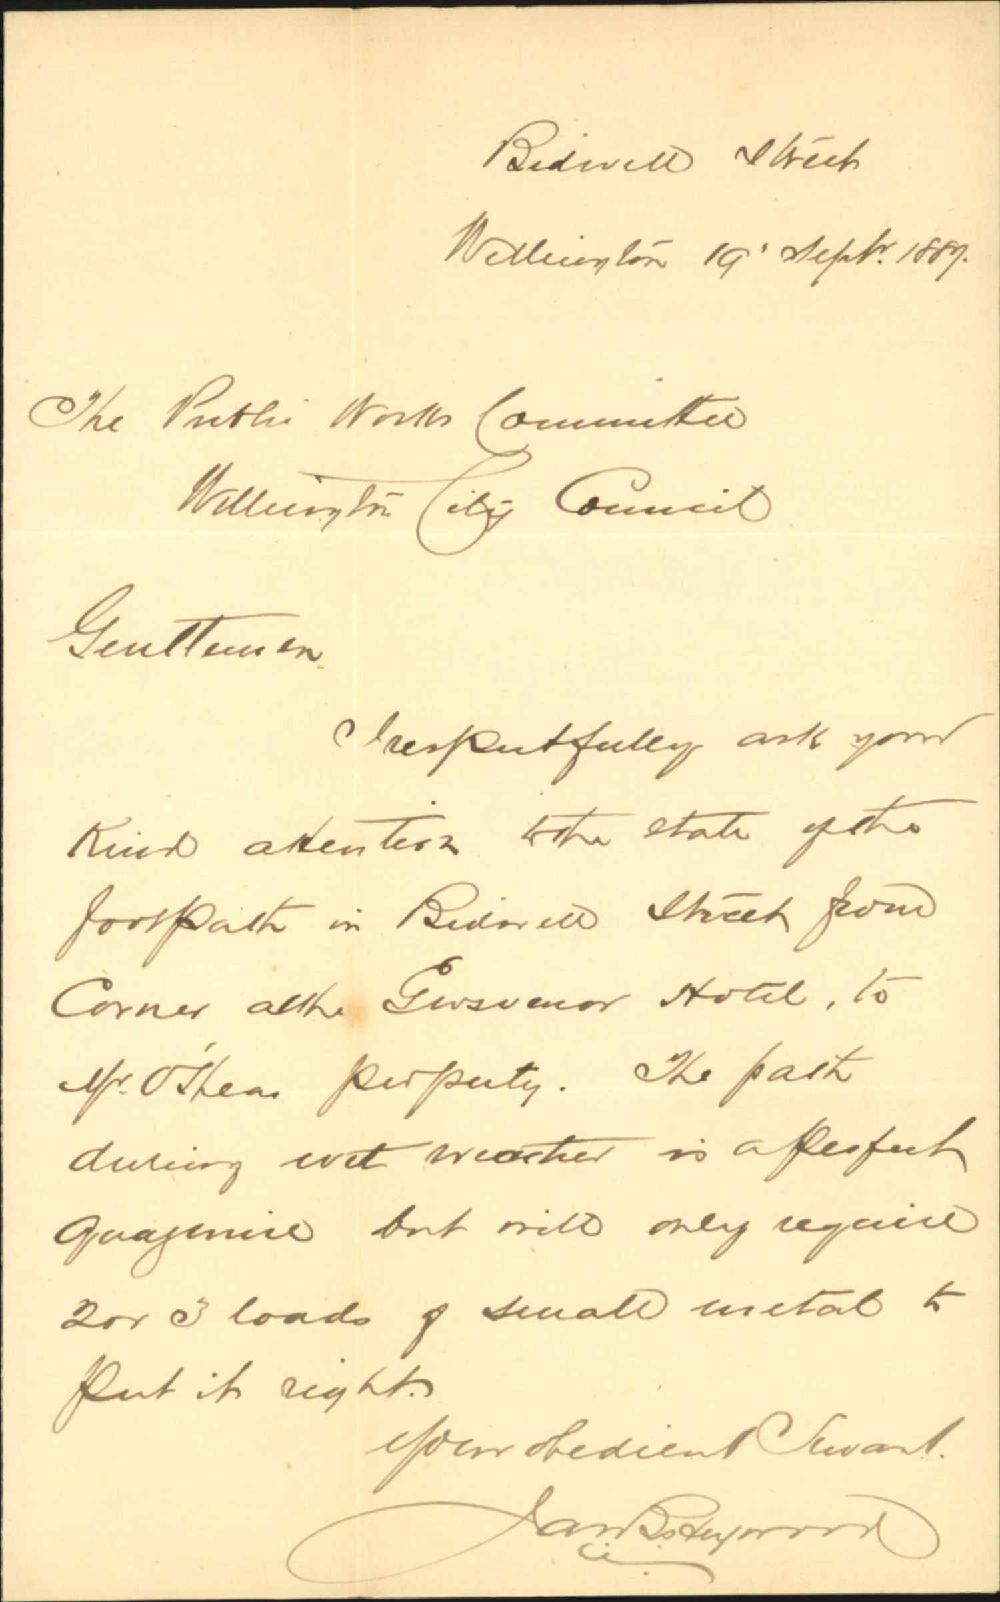 Bidwell Street
Wellington 19' Septr. 1889.
The Public Works Committee
Wellington City Council
Gentlemen
I respectfully ask your
Kind attention to the state of the
footpath in Bidwell Street from
Corner at the Grosvenor Hotel, to
Mr. O'Shea property. The path
during wet weather is a perfect
quagmire but will only require
2 or 3 loads of small metal to
put it right.
Your obedient Servant.
Jas B Heywood